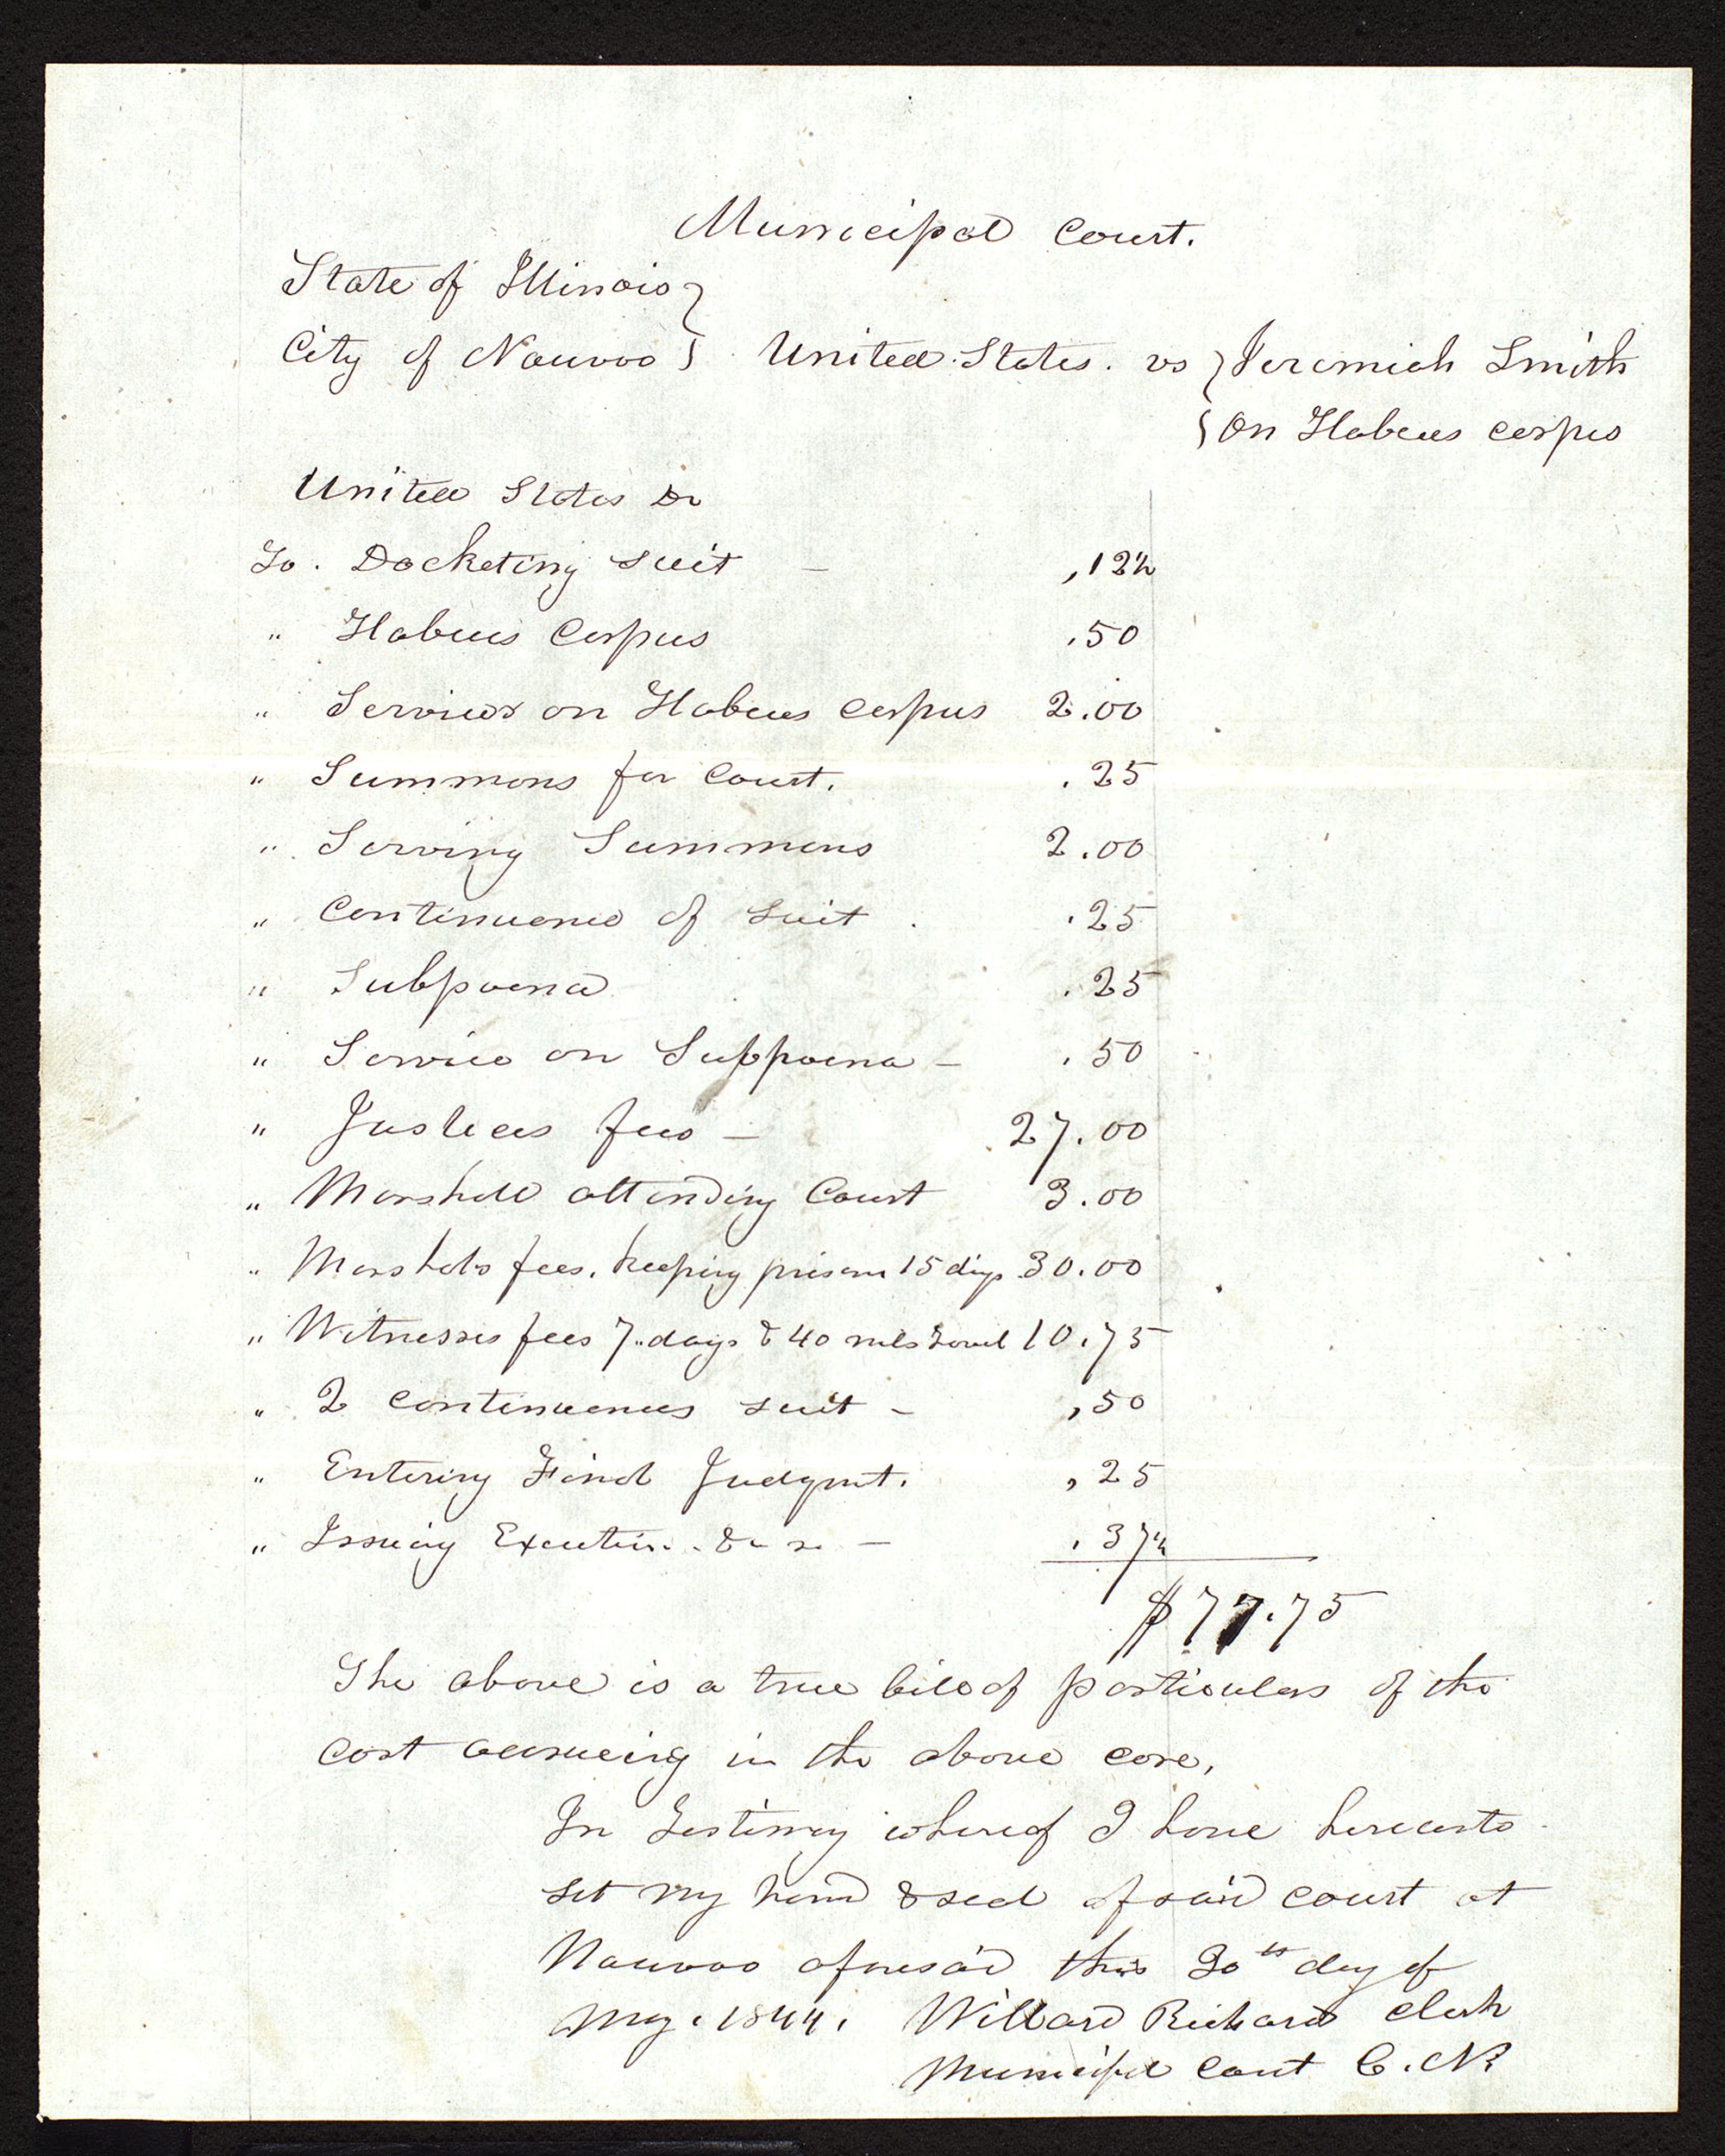 Municipal Court.
State of Illinois }
City of Nauvoo } United States. vs } Jeremiah Smith
} On Habeus corpus
United States Dr
To. Docketing suit – ,12½
" Habeus Corpus .50
" Services on Habeus corpus 2.00
" Summons for Court. .25
" Serving Summons 2.00
" Continuance of suit . .25
" Subpoena .25
" Service on Suppoena – .50
" Justices fees – 27.00
" Marshall attending Court 3.00
" Marshals fees. keeping prisoner 15 days 30.00
" Witnesses fees 7 days & 40 miles travel 10.75
" 2 continuences suit – ,50
" Entering Final Judgmt. ,25
" Issuing Execution .37½
$77.75
The above is a true bill of particulars of the
cost accrueing in the above case,
In Testimony whereof I have hereunto
set my hand & seal of said court at
Nauvoo aforesaid this 30th day of
May. 1844. Willard Richards clerk
Municipal Court C. N